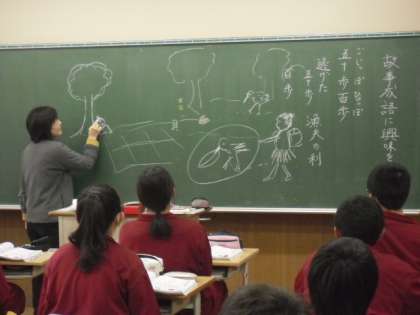 故事成語に興味を
ごじっぽひゃっぽ
五十歩百歩
逃げた
五十歩
百歩
漁夫の利